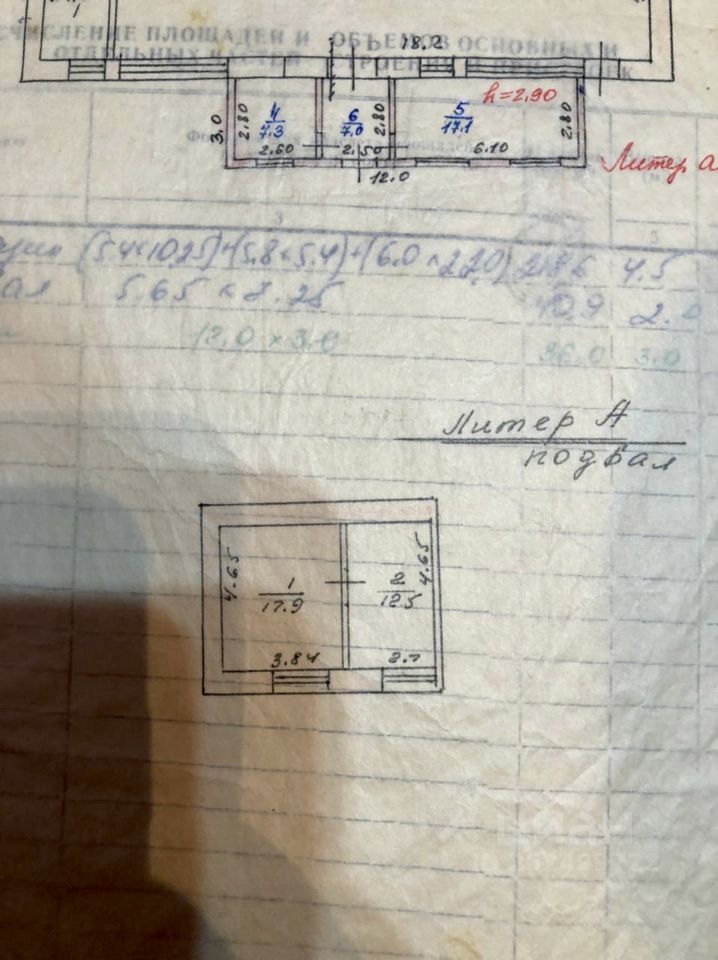 1
18.2
СЧИСЛЕНИЕ ПЛОЩАДЕЙ И ОБЪЕМОВ ОСНОВНЫХ И
ОТДЕЛЬНЫХ ЧАСТЕЙ СТРОЕНИЯ И ПРИСТРОЕК
h=2.90
3.0 2.80 4 7.3 6 7.0 2.80 5 17.1 2.80
2.60 2.50 6.10
12.0
Литер а
3 5
(5.4×10.25)+(5.8×5.4)+(6.0×2.20) 4.5
5.65 × 8.25
12.0 × 3.0 36.0 3.0
Литер А
подвал
4.65 1 17.9 2 12.5 4.65
3.84 2.7
циан